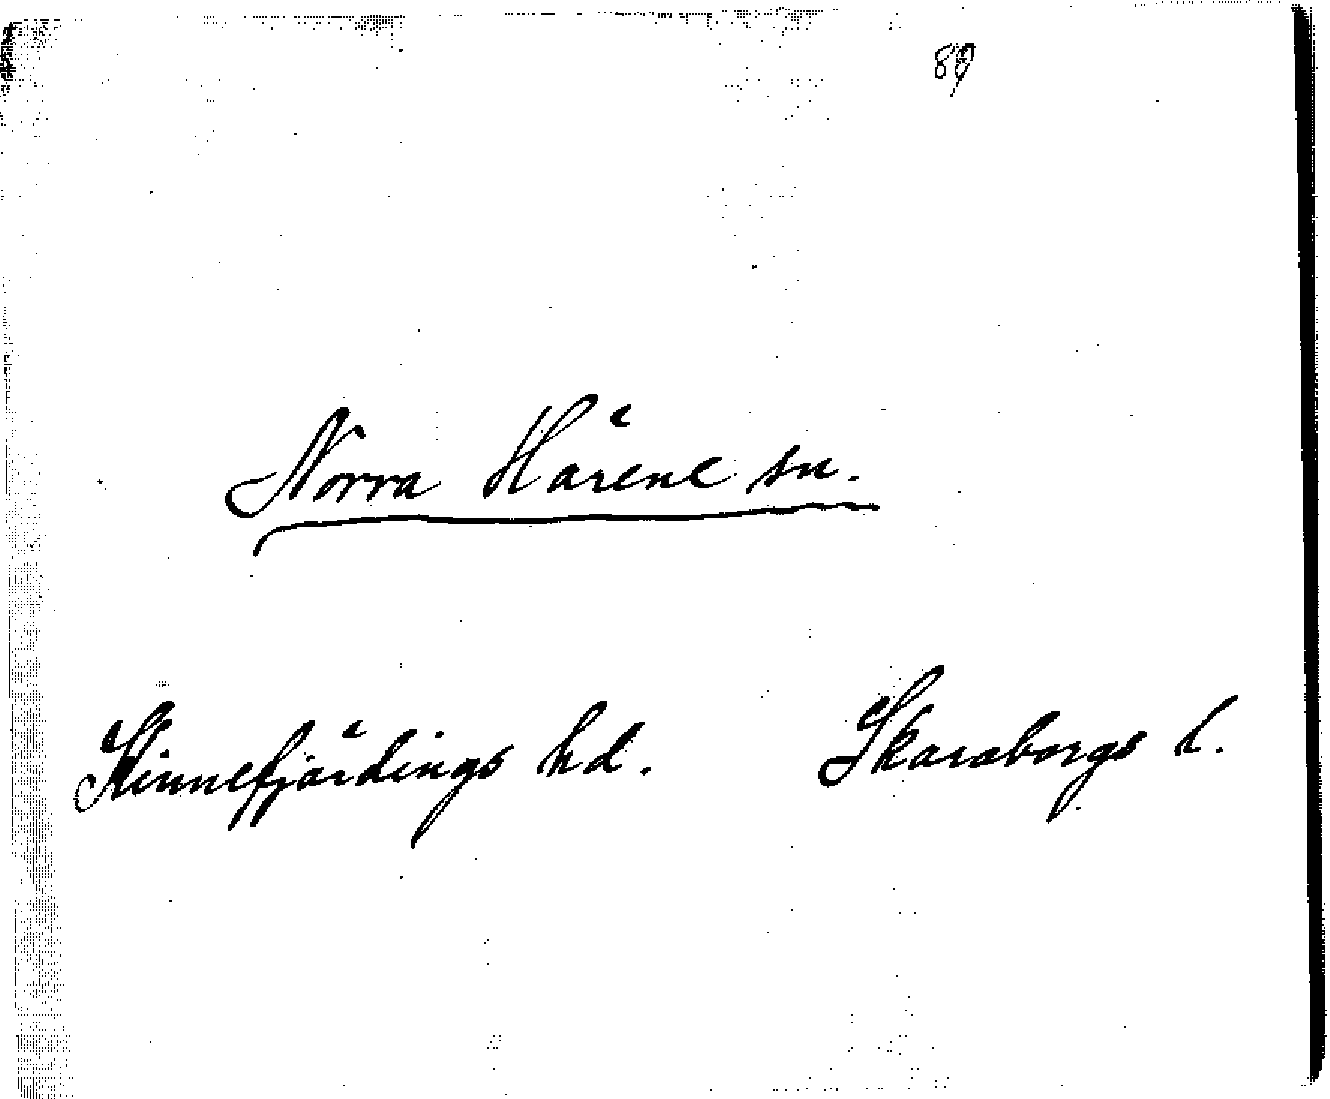 89
Norra Härene sn.
Kinnefjärdings hd. Skaraborgs l.